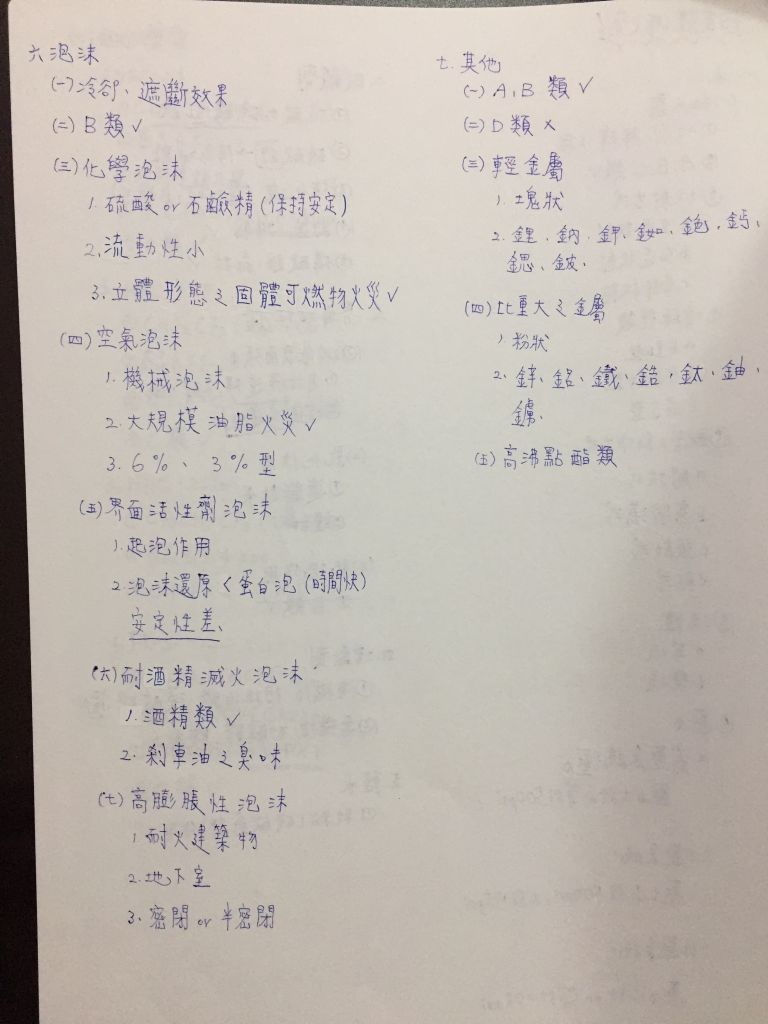 六泡沫
(一)冷卻、遮斷效果
(二)B類✓
(三)化學泡沫
1.硫酸or石鹼精(保持安定)
2.流動性小
3.立體形態之固體可燃物火災✓
(四)空氣泡沫
1.機械泡沫
2.大規模油脂火災✓
3.6%、3%型
(五)界面活性劑泡沫
1.起泡作用
2.泡沫還原<蛋白泡(時間快)
安定性差、
(六)耐酒精滅火泡沫
1.酒精類✓
2.剎車油之臭味
(七)高膨脹性泡沫
1.耐火建築物
2.地下室
3.密閉or半密閉
七.其他
(一)A,B類✓
(二)D類×
(三)輕金屬
1.塊狀
2.鋰、鈉、鉀、銣、銫、鈣、
鍶、鈹、
(四)比重大之金屬
1.粉狀
2.鋅、鋁、鐵、鋯、鈦、鈾、
(五)高沸點酯類